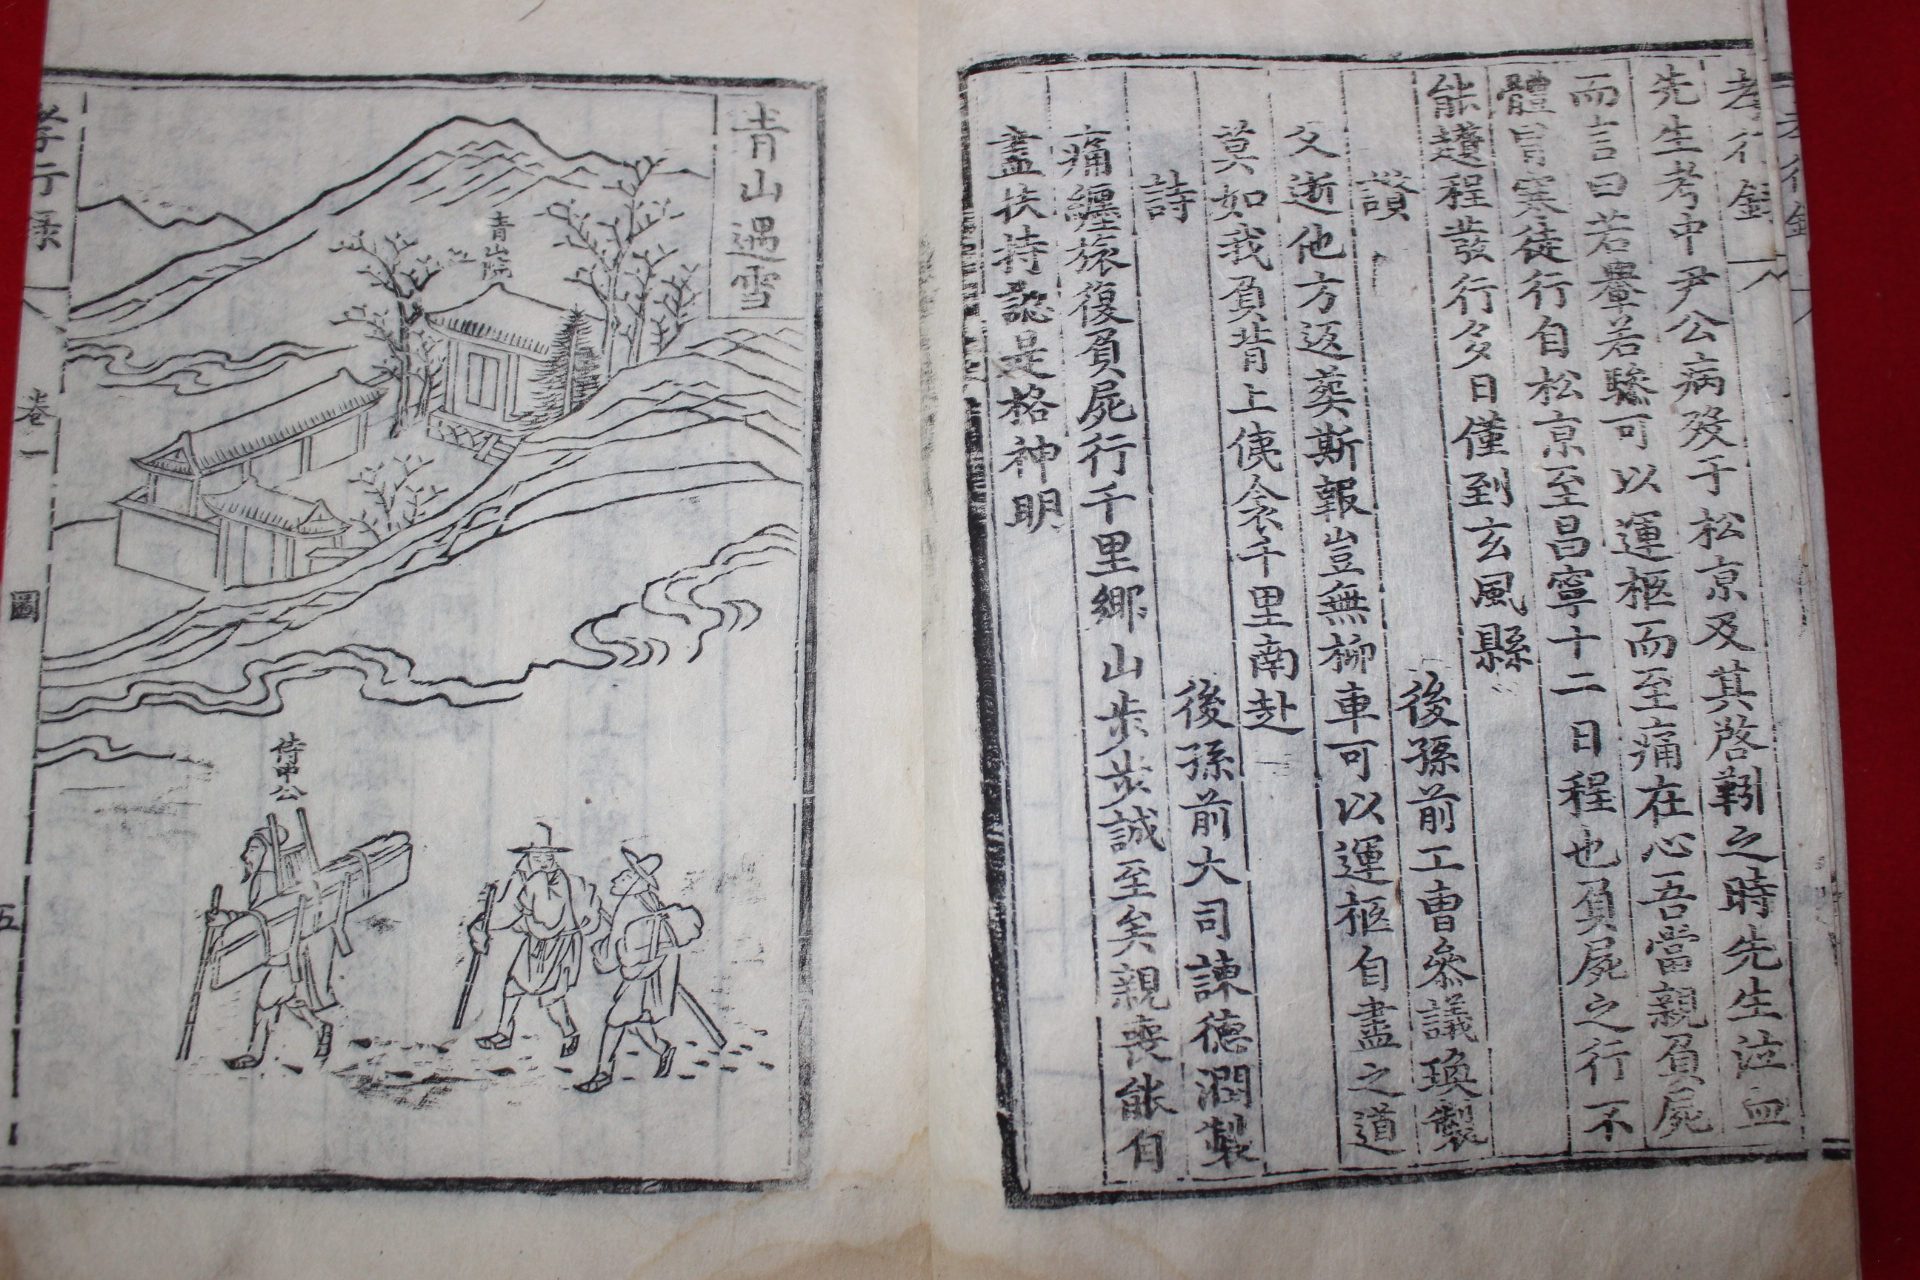 孝行錄
先生考中尹公病歿于松京及其啓靷之時先生泣血
而言曰若轝若驂可以運柩而至痛在心吾當親負屍
體冒寒徒行自松京至昌寧十二日程也負屍之行不
能趲程發行多日僅到玄風縣
讚
後孫前工曺參議瑍製
父逝他方返葬斯報豈無柳車可以運柩自盡之道
莫如我負背上俟令千里南赴
詩
後孫前大司諫德潤製
痛纏旅復負屍行千里鄉山步步誠至矣親喪能自
盡扶持認是格神明
青山遇雪
青山院
侍中公
孝行錄
卷一
圖
五